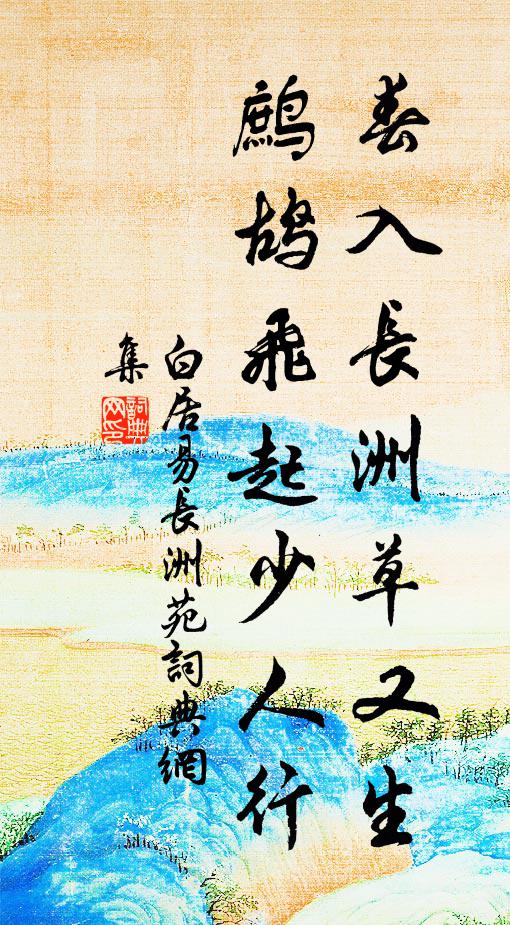 春入長洲草又生
鷓鴣飛起少人行
白居易長洲苑詞典網
集
詞典網印